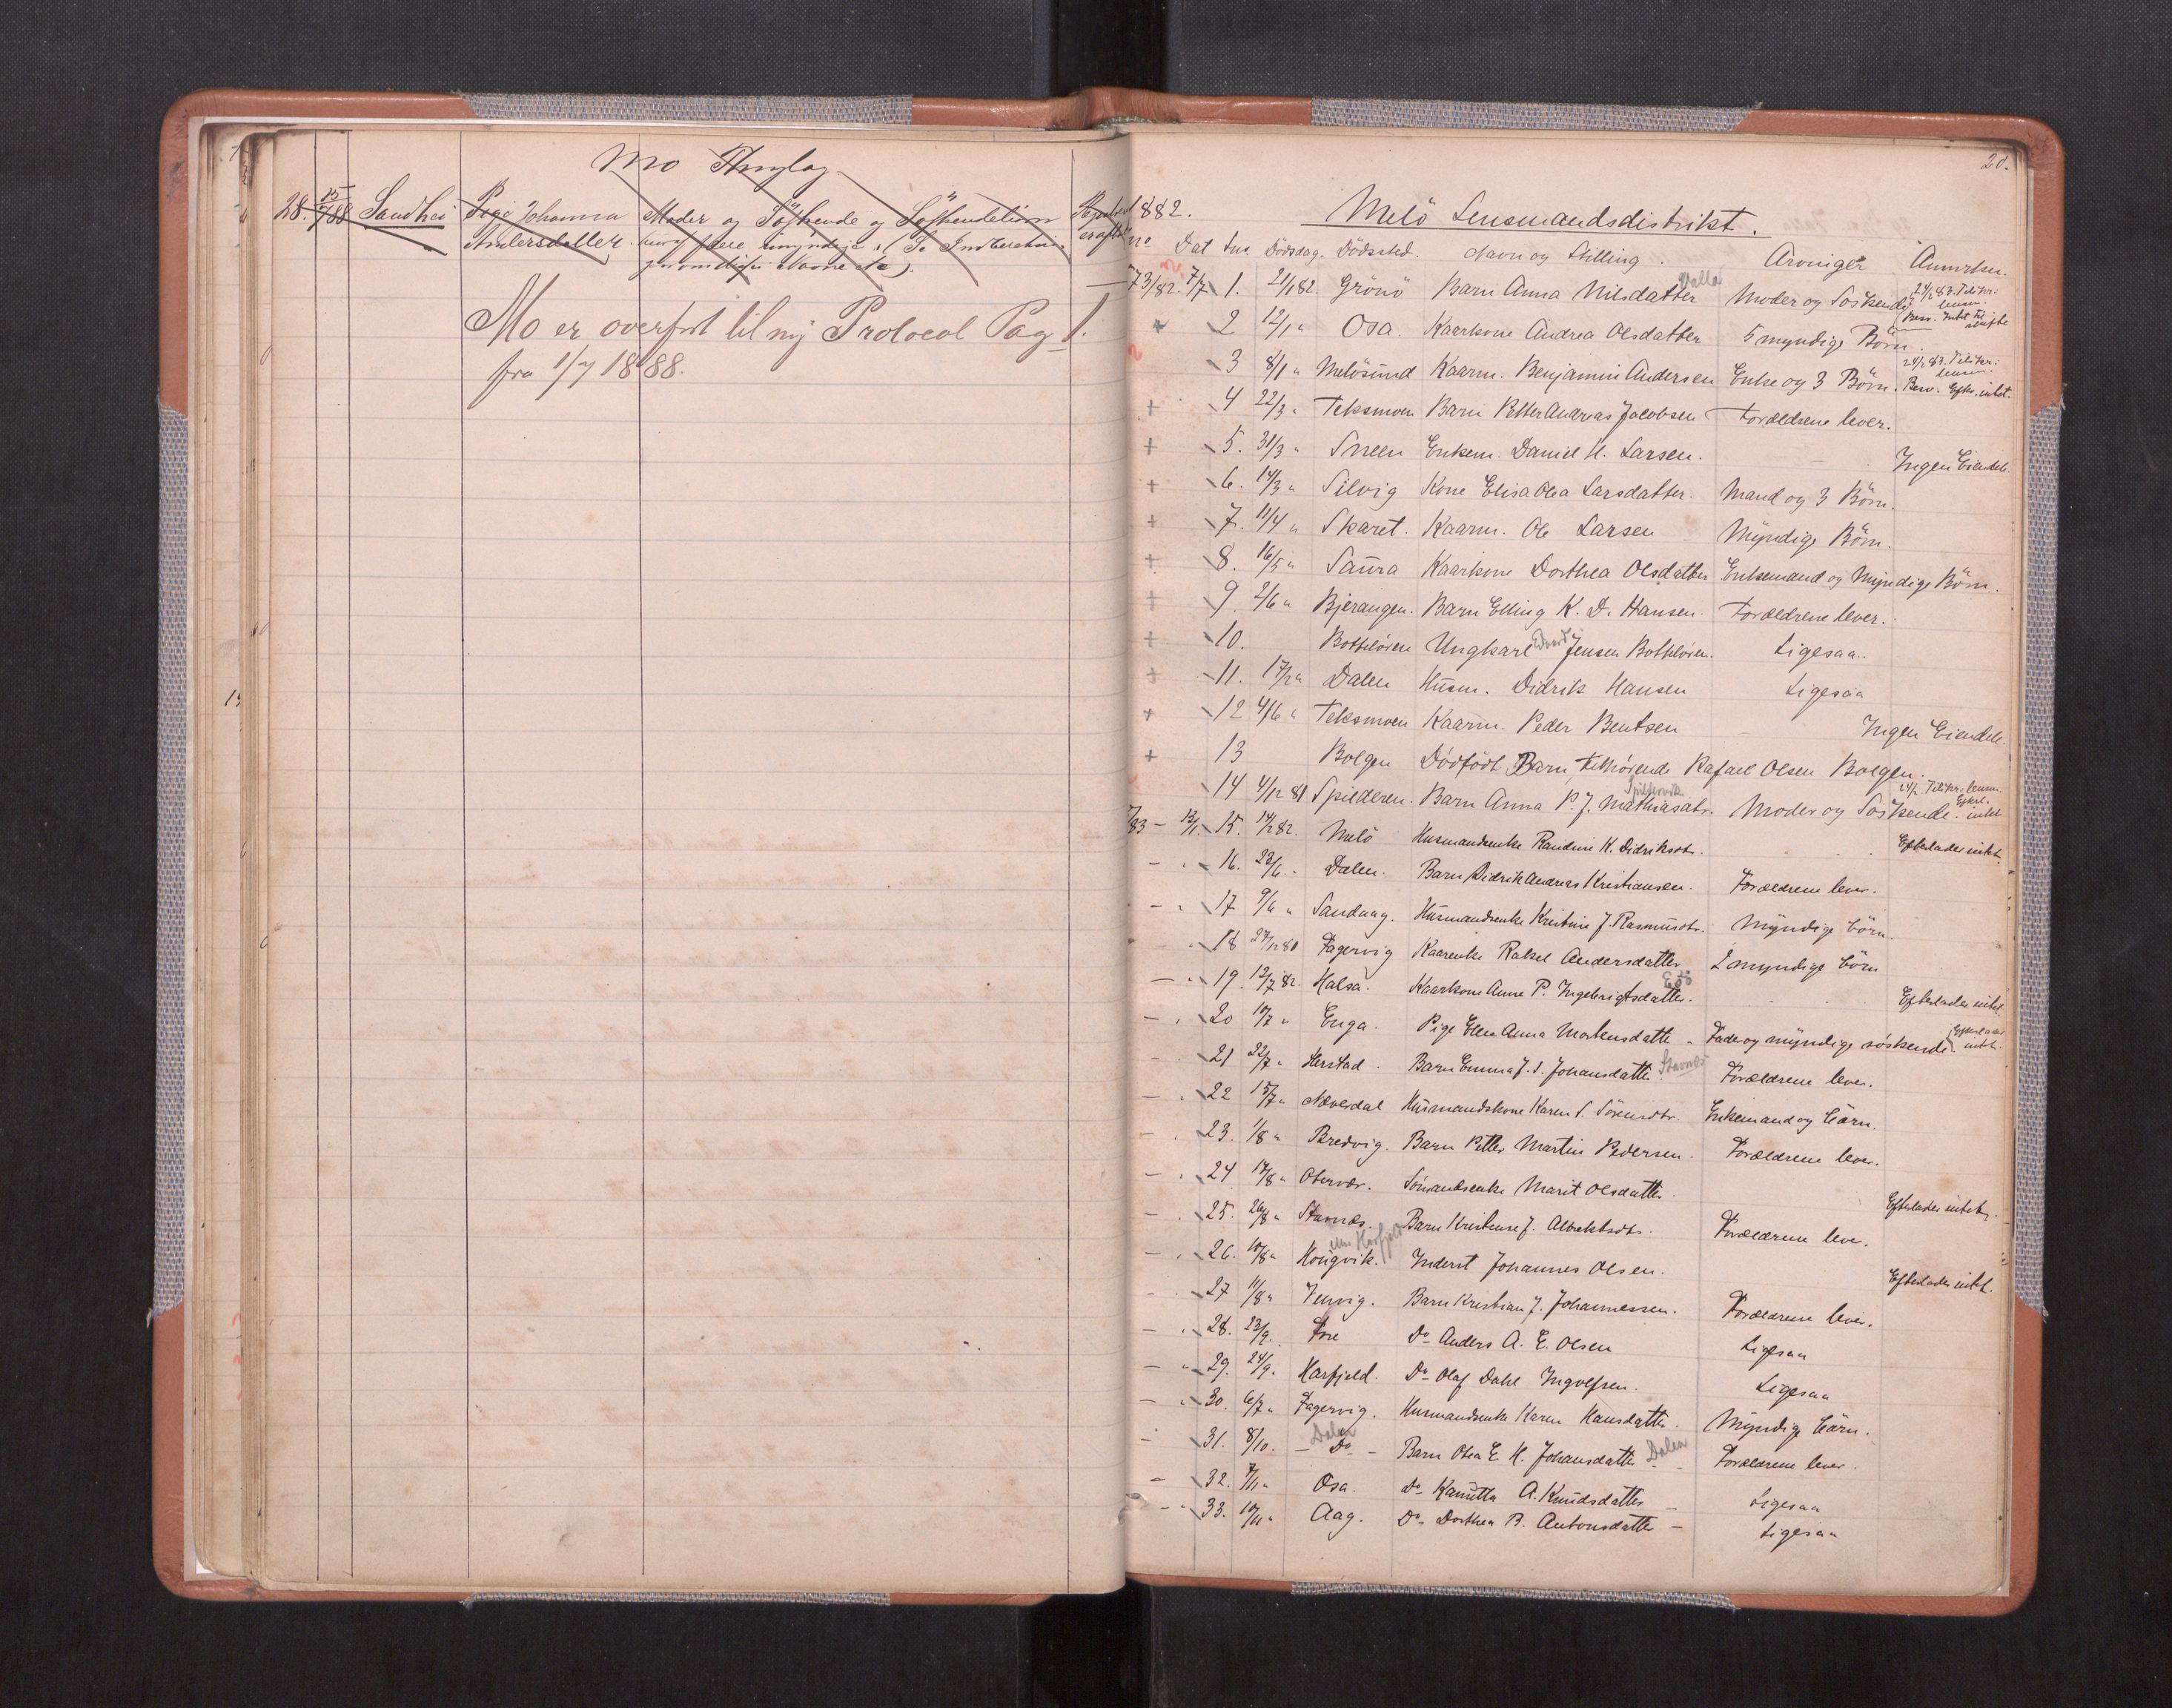 Mo Thinglag
28. 15/7 88 Sandhei Pige Johanna Moder og Söskende og Söskendebörn
Andersdatter. hvoraf flere umyndige. (Se Indberetn.
Mo er overført til ny Protocol Pag 1.
fra 1/7 1888.
28.
1882. Melö Lensmandsdistrikt.
No Dat Lnr. Dödsdag. Dödssted. Navn og Stilling. Arvinger Anmerkn.
573/82. 7/7 1. 21/1 82. Grönö Barn Anna Nilsdatter Valla Moder og Söskende 24/2 83. Tilskr. lensm. Besv. Intet til skifte
2 12/1 " Osa. Kaarkone Andrea Olsdatter 5 myndige Börn.
3 8/1 " Melösund Kaarm. Benjamin Andersen Enke og 3 Börn. 24/2 83. Tilskr. lensm. Besv. Efterl. intet.
4 22/3 " Teksmoen Barn Petter Andreas Jacobsen Forældrene lever.
5. 31/3 " Sneen Enkem. Daniel H. Larsen. Ingen Eiendele
6. 14/3 " Silvig Kone Elisa Olea Larsdatter. Mand og 3 Börn.
7. 11/4 " Skaret. Kaarm. Ole Larsen Myndige Börn.
8. 16/5 " Saura Kaarkone Dorthea Olsdatter Enkemand og Myndige Börn.
9 2/6 " Bjerangen. Barn Elling K. D. Hansen. Forældrene lever.
10. Botheløren Ungkarl Edvard Jensen Botheløren. Ligesaa.
11. 17/2 " Dalen Husm. Didrik Hansen Ligesaa
12 4/6 " Teksmoen Kaarm. Peder Bentsen Ingen Eiendele.
13 Bolgen Dödfödt Barn tilhörende Rafael Olsen Bolgen.
14 4/12 81 Spilderen. Barn Anna P. J. Mathiasdtr. Spildervik Moder og Söskende. 24/2 Tilskr. lensm. Efterl. intet
7/83 - 13/1. 15. 14/2 82. Melö Husmandsenke Randine K. Didriksdtr. Efterlader intet.
16. 23/6. Dalen. Barn Didrik Andreas Kristiansen. Forældrene lever.
17 9/6 " Sandvag. Husmandsenke Kristine J. Rasmusdtr. Myndige börn.
18 27/12 81 Fagervig Kaarenke Rakel Andersdatter 2 myndige börn
19. 12/7 82. Halsa. Kaarkone Anne P. Ingebrigtsdatter. Efterlader intet.
20 10/7 " Enga. Pige Ellen Anna Mortensdatter Fader og myndige söskende. Efterlader intet.
21 22/7 " Herstad. Barn Emma J. S. Johansdatter Stavnes Forældrene lever.
22 15/7 " Neverdal Husmandskone Karen S. Sörensdtr. Enkemand og börn.
23. 1/8 " Bredvig. Barn Petter Martin Pedersen. Forældrene lever.
24 17/8 " Otervær. Sömandsenke Marit Olsdatter Efterlader intet.
25. 26/8 " Stavnæs. Barn Kristense J. Albrektsdtr. Forældrene lever.
26. 10/8 " Hougvik. Inderst Johannes Olsen. Efterlader intet.
27 11/8 " Jenvig. Barn Kristian J. Johannessen. Forældrene lever.
28. 23/9. Fore Do Anders A. E. Olsen Ligesaa
29. 24/9. Harfjeld. Do Olaf Dahl Ingolfsen. Ligesaa
30. 6/7 " Fagervig. Husmandsenke Karen Hansdatter. Myndige börn.
31. 8/10. - Do - Dalen Barn Olea E. H. Johansdatter Dalen Forældrene lever.
32. 7/11 " Osa. Do Kanutta A. Knudsdatter Ligesaa
33. 10/11 " Aag. Do Dorthea B. Antonsdatter Ligesaa